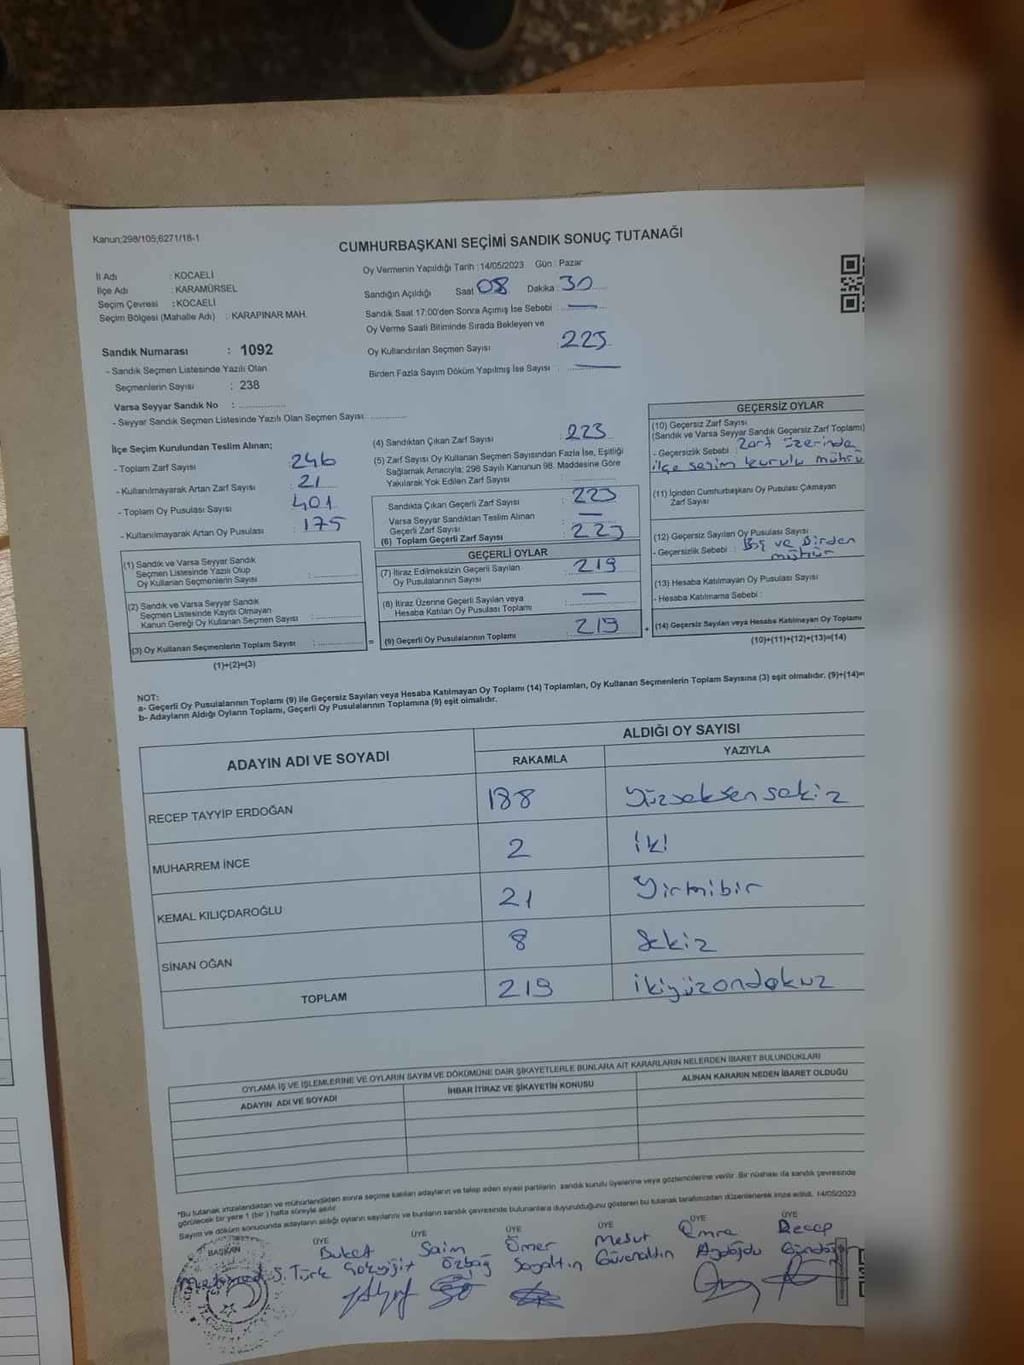 Kanun;298/105;6271/18-1
CUMHURBAŞKANI SEÇİMİ SANDIK SONUÇ TUTANAĞI
İl Adı : KOCAELİ
İlçe Adı : KARAMÜRSEL
Seçim Çevresi : KOCAELİ
Seçim Bölgesi (Mahalle Adı) : KARAPINAR MAH.
Sandık Numarası : 1092
- Sandık Seçmen Listesinde Yazılı Olan
Seçmenlerin Sayısı : 238
Varsa Seyyar Sandık No :
- Seyyar Sandık Seçmen Listesinde Yazılı Olan Seçmen Sayısı
Oy Vermenin Yapıldığı Tarih : 14/05/2023 Gün : Pazar
Sandığın Açıldığı Saat 08 Dakika 30
Sandık Saat 17:00'den Sonra Açımış İse Sebebi : —
Oy Verme Saati Bitiminde Sırada Bekleyen ve
Oy Kullandırılan Seçmen Sayısı 225
Birden Fazla Sayım Döküm Yapılmış İse Sayısı : —
İlçe Seçim Kurulundan Teslim Alınan;
- Toplam Zarf Sayısı 246
- Kullanılmayarak Artan Zarf Sayısı : 21
- Toplam Oy Pusulası Sayısı : 401
- Kullanılmayarak Artan Oy Pusulası : 175
(1) Sandık ve Varsa Seyyar Sandık
Seçmen Listesinde Yazılı Olup
Oy Kullanan Seçmenlerin Sayısı :
(2) Sandık ve Varsa Seyyar Sandık
Seçmen Listesinde Kaydı Olmayan
Kanun Gereği Oy Kullanan Seçmen Sayısı :
(3) Oy Kullanan Seçmenlerin Toplam Sayısı : =
(1)+(2)=(3)
(4) Sandıktan Çıkan Zarf Sayısı 223
(5) Zarf Sayısı Oy Kullanan Seçmen Sayısından Fazla İse, Eşitliği
Sağlamak Amacıyla; 298 Sayılı Kanunun 98. Maddesine Göre
Yakılarak Yok Edilen Zarf Sayısı
Sandıkta Çıkan Geçerli Zarf Sayısı 223
Varsa Seyyar Sandıktan Teslim Alınan
Geçerli Zarf Sayısı —
(6) Toplam Geçerli Zarf Sayısı 223
GEÇERLİ OYLAR
(7) İtiraz Edilmeksizin Geçerli Sayılan
Oy Pusulalarının Sayısı 219
(8) İtiraz Üzerine Geçerli Sayılan veya
Hesaba Katılan Oy Pusulası Toplamı —
(9) Geçerli Oy Pusulalarının Toplamı 219 +
GEÇERSİZ OYLAR
(10) Geçersiz Zarf Sayısı
(Sandık ve Varsa Seyyar Sandık Geçersiz Zarf Toplamı)
- Geçersizlik Sebebi : Zarf üzerinde
ilçe seçim kurulu mührü
(11) İçinden Cumhurbaşkanı Oy Pusulası Çıkmayan
Zarf Sayısı
(12) Geçersiz Sayılan Oy Pusulası Sayısı
- Geçersizlik Sebebi : Boş ve Birden
mühür
(13) Hesaba Katılmayan Oy Pusulası Sayısı
- Hesaba Katılmama Sebebi :
(14) Geçersiz Sayılan veya Hesaba Katılmayan Oy Toplamı
(10)+(11)+(12)+(13)=(14)
NOT:
a- Geçerli Oy Pusulalarının Toplamı (9) ile Geçersiz Sayılan veya Hesaba Katılmayan Oy Toplamı (14) Toplamları, Oy Kullanan Seçmenlerin Toplam Sayısına (3) eşit olmalıdır. (9)+(14)=
b- Adayların Aldığı Oyların Toplamı, Geçerli Oy Pusulalarının Toplamına (9) eşit olmalıdır.
ADAYIN ADI VE SOYADI ALDIĞI OY SAYISI
RAKAMLA YAZIYLA
RECEP TAYYİP ERDOĞAN 188 Yüzseksensekiz
MUHARREM İNCE 2 iki
KEMAL KILIÇDAROĞLU 21 Yirmibir
SİNAN OĞAN 8 Sekiz
TOPLAM 219 ikiyüzondokuz
OYLAMA İŞ VE İŞLEMLERİNE VE OYLARIN SAYIM VE DÖKÜMÜNE DAİR ŞİKAYETLERLE BUNLARA AİT KARARLARIN NELERDEN İBARET BULUNDUKLARI
ADAYIN ADI VE SOYADI İHBAR İTİRAZ VE ŞİKAYETİN KONUSU ALINAN KARARIN NEDEN İBARET OLDUĞU
*Bu tutanak imzalandıktan ve mühürlendikten sonra seçime katılan adayların ve talep eden siyasi partilerin sandık kurulu üyelerine veya gözlemcilerine verilir. Bir nüshası da sandık çevresinde
görülecek bir yere 1 (bir) hafta süreyle asılır.
Sayım ve döküm sonucunda adayların aldığı oyların sayılarını ve bunların sandık çevresinde bulunanlara duyurulduğunu gösteren bu tutanak tarafımızdan düzenlenerek imza edildi. 14/05/2023
BAŞKAN ÜYE ÜYE ÜYE ÜYE ÜYE ÜYE
Buket Saim Ömer Mesut Emre Recep
S. Türk Gökyiğit Özbağ Soyaltın Güvenaldın